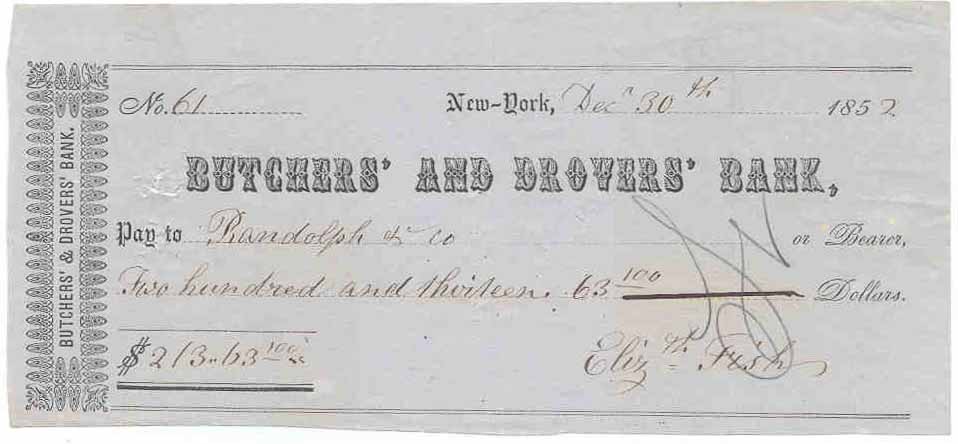 BUTCHERS' & DROVERS' BANK.
No. 61 New-York, Decr 30th 1852
BUTCHERS' AND DROVERS' BANK,
Pay to Randolph & Co or Bearer,
Two hundred and thirteen. 63/100 Dollars.
$213.63/100
Elizth Fish